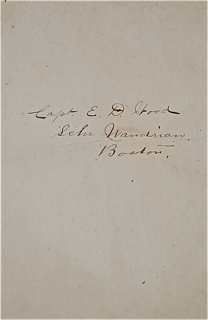 Capt. E. D. Wood
Schr. Wandrian.
Boston.